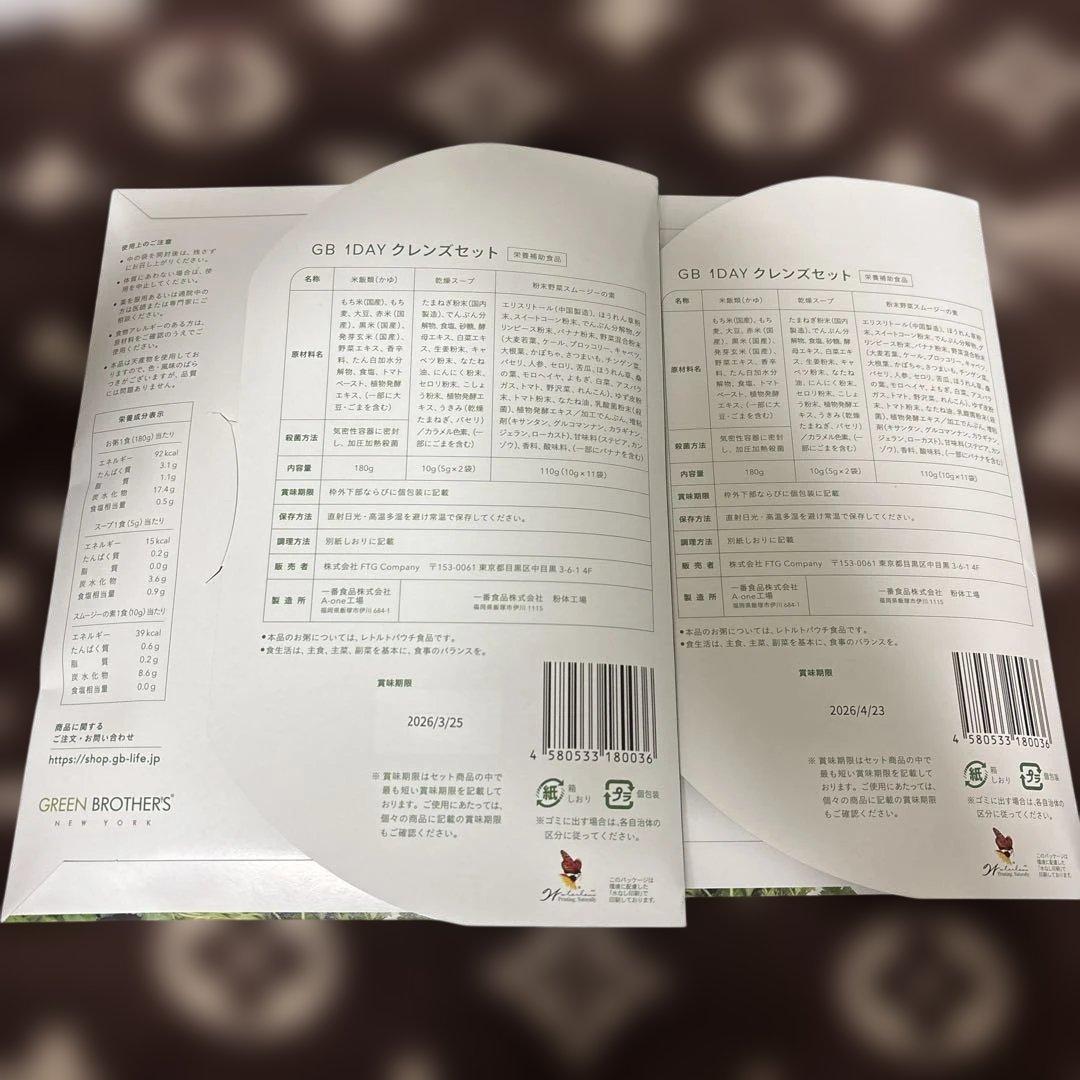 使用上のご注意
● 中の袋を開封後は、残さず
にお召し上がりください。
● 体質にあわない場合は、使
用を中止してください。
● 薬を服用あるいは通院中の
方は医師または専門家にご
相談ください。
● 食物アレルギーのある方は、
原材料をご確認のうえでご
使用ください。
● 本品は天産物を使用してお
りますので、色・風味のばら
つきがございますが、品質
には問題ありません。
栄養成分表示
お粥1食(180g)当たり
エネルギー 92kcal
たんぱく質 3.1g
脂質 1.1g
炭水化物 17.4g
食塩相当量 0.5g
スープ1食(5g)当たり
エネルギー 15kcal
たんぱく質 0.2g
脂質 0.0g
炭水化物 3.6g
食塩相当量 0.9g
スムージーの素1食(10g)当たり
エネルギー 39kcal
たんぱく質 0.6g
脂質 0.2g
炭水化物 8.6g
食塩相当量 0.0g
商品に関する
ご注文・お問い合わせ
https://shop.gb-life.jp
GREEN BROTHER'S®
NEW YORK
GB 1DAY クレンズセット 栄養補助食品
名称 米飯類(かゆ) 乾燥スープ 粉末野菜スムージーの素
原材料名
もち米(国産)、もち
麦、大豆、赤米(国
産)、黒米(国産)、
発芽玄米(国産)、
野菜エキス、香辛
料、たん白加水分
解物、食塩、トマト
ペースト、植物発酵
エキス、(一部に大
豆・ごまを含む)
たまねぎ粉末(国内
製造)、でんぷん分
解物、食塩、砂糖、酵
母エキス、白菜エキ
ス、生姜粉末、キャ
ベツ粉末、なたね
油、にんにく粉末、
セロリ粉末、こしょ
う粉末、植物発酵エ
キス、うきみ(乾燥
たまねぎ、パセリ)
/カラメル色素、(一
部にごまを含む)
エリスリトール(中国製造)、ほうれん草粉
末、スイートコーン粉末、でんぷん分解物、グ
リンピース粉末、バナナ粉末、野菜混合粉末
(大麦若葉、ケール、ブロッコリー、キャベツ、
大根葉、かぼちゃ、さつまいも、チンゲン菜、
パセリ、人参、セロリ、苦瓜、ほうれん草、桑
の葉、モロヘイヤ、よもぎ、白菜、アスパラ
ガス、トマト、野沢菜、れんこん)、ゆず皮粉
末、トマト粉末、なたね油、乳酸菌粉末(殺
菌)、植物発酵エキス/加工でんぷん、増粘
剤(キサンタン、グルコマンナン、カラギナン、
ジェラン、ローカスト)、甘味料(ステビア、カン
ゾウ)、香料、酸味料、(一部にバナナを含む)
殺菌方法 気密性容器に密封
し、加圧加熱殺菌
内容量 180g 10g(5g×2袋) 110g(10g×11袋)
賞味期限 枠外下部ならびに個包装に記載
保存方法 直射日光・高温多湿を避け常温で保存してください。
調理方法 別紙しおりに記載
販売者 株式会社 FTG Company 〒153-0061 東京都目黒区中目黒 3-6-1 4F
製造所 一番食品株式会社
A-one工場
福岡県飯塚市伊川 684-1
一番食品株式会社 粉体工場
福岡県飯塚市伊川 1115
●本品のお粥については、レトルトパウチ食品です。
●食生活は、主食、主菜、副菜を基本に、食事のバランスを。
賞味期限
2026/3/25
4 580533 180036
※ 賞味期限はセット商品の中で
最も短い賞味期限を記載して
おります。ご使用にあたっては、
個々の商品に記載の賞味期限
もご確認ください。
紙 箱
しおり
プラ 個包装
※ゴミに出す場合は、各自治体の
区分に従ってください。
Waterless™
Printing. Naturally.
このパッケージは
環境に配慮した
「水なし印刷」で
印刷しております。
GB 1DAY クレンズセット 栄養補助食品
名称 米飯類(かゆ) 乾燥スープ 粉末野菜スムージーの素
原材料名
もち米(国産)、もち
麦、大豆、赤米(国
産)、黒米(国産)、
発芽玄米(国産)、
野菜エキス、香辛
料、たん白加水分
解物、食塩、トマト
ペースト、植物発酵
エキス、(一部に大
豆・ごまを含む)
たまねぎ粉末(国内
製造)、でんぷん分
解物、食塩、砂糖、酵
母エキス、白菜エキ
ス、生姜粉末、キャ
ベツ粉末、なたね
油、にんにく粉末、
セロリ粉末、こしょ
う粉末、植物発酵エ
キス、うきみ(乾燥
たまねぎ、パセリ)
/カラメル色素、(一
部にごまを含む)
エリスリトール(中国製造)、ほうれん草粉
末、スイートコーン粉末、でんぷん分解物、グ
リンピース粉末、バナナ粉末、野菜混合粉末
(大麦若葉、ケール、ブロッコリー、キャベツ、
大根葉、かぼちゃ、さつまいも、チンゲン菜、
パセリ、人参、セロリ、苦瓜、ほうれん草、桑
の葉、モロヘイヤ、よもぎ、白菜、アスパラ
ガス、トマト、野沢菜、れんこん)、ゆず皮粉
末、トマト粉末、なたね油、乳酸菌粉末(殺
菌)、植物発酵エキス/加工でんぷん、増粘
剤(キサンタン、グルコマンナン、カラギナン、
ジェラン、ローカスト)、甘味料(ステビア、カン
ゾウ)、香料、酸味料、(一部にバナナを含む)
殺菌方法 気密性容器に密封
し、加圧加熱殺菌
内容量 180g 10g(5g×2袋) 110g(10g×11袋)
賞味期限 枠外下部ならびに個包装に記載
保存方法 直射日光・高温多湿を避け常温で保存してください。
調理方法 別紙しおりに記載
販売者 株式会社 FTG Company 〒153-0061 東京都目黒区中目黒 3-6-1 4F
製造所 一番食品株式会社
A-one工場
福岡県飯塚市伊川 684-1
一番食品株式会社 粉体工場
福岡県飯塚市伊川 1115
●本品のお粥については、レトルトパウチ食品です。
●食生活は、主食、主菜、副菜を基本に、食事のバランスを。
賞味期限
2026/4/23
4 580533 180036
※ 賞味期限はセット商品の中で
最も短い賞味期限を記載して
おります。ご使用にあたっては、
個々の商品に記載の賞味期限
もご確認ください。
紙 箱
しおり
プラ 個包装
※ゴミに出す場合は、各自治体の
区分に従ってください。
Waterless™
Printing. Naturally.
このパッケージは
環境に配慮した
「水なし印刷」で
印刷しております。